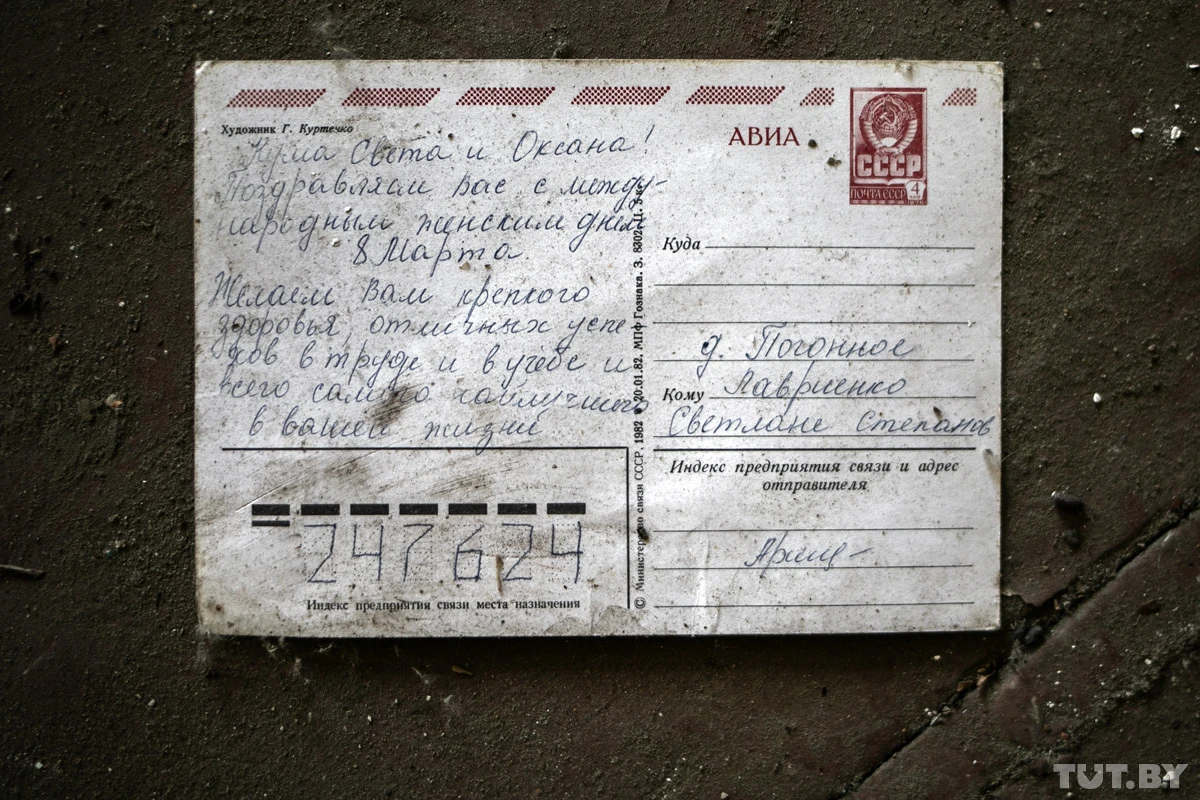 Художник Г. Куртечко
АВИА
СССР
ПОЧТА СССР 4
Кума Света и Оксана!
Поздравляем вас с между-
народным женским днём
8 Марта
Желаем вам крепкого
здоровья, отличных успе-
хов в труде и в учебе и
всего самого наилучшего
в вашей жизни
247624
Индекс предприятия связи места назначения
© Министерство связи СССР. 1982 20.01.82. МПФ Гознака. З. 8302. Ц. 5 к.
Куда
д. Погонное
Кому Лавриенко
Светлане Степанов
Индекс предприятия связи и адрес
отправителя
TUT.BY